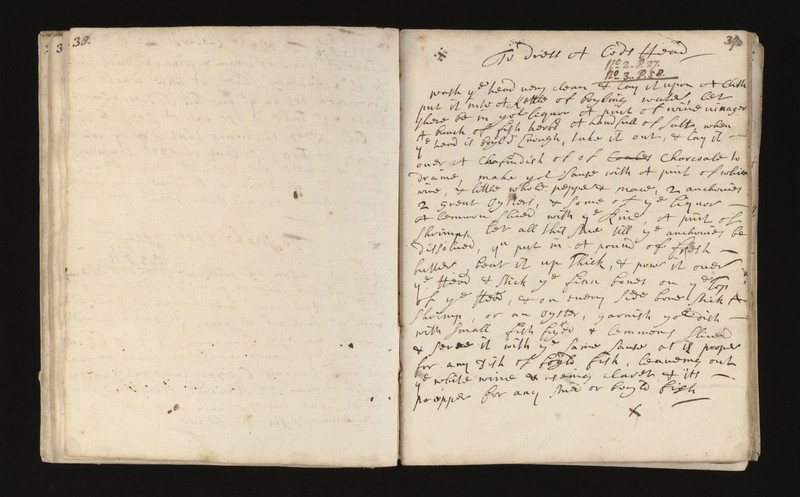 3 38.
39
To Dress A Cods Head
No 2. P. 27.
No 3. P. 58.
wash ye head very clean & lay it upon A Cloth
put it into A Kettle of boyling water, let
there be in yor liquor A pint of wine vinager
A bunch of fish herbs A handfull of salt, when
ye head is boyld Enough, take it out, & lay it
over A Chafindish of of Coales Charcoale to
draine, make yor sause with A pint of white
wine, A little whole pepper & mace, 2 anchovies
2 great oysters, & some of ye liquor
A lemmon sliced with ye Rine, A pint of
shrimps, let all this stue till ye anchovies be
dissolved, yn put in A pound of fresh
butter, beat it up Thick, & powr it over
ye Head & stick ye finn bones on ye Top
of ye Head, & on every side bone stick A
shrimp, or an oyster, garnish yor dish
with small fish fryed & lemmons sliced
& serve it with ye same sause as is proper
for any dish of boyld fish, leaveing out
ye white wine & useing claret & its
propper for any stued or boyld fish
x